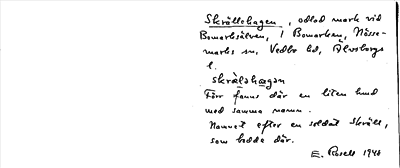 Skrällehagen, odlad mark vid
Bomarksälven, i Bomarken, Nösse-
marks sn, Vedbo hd, Älvsborgs
l.
skrälahagan
Förr fanns där en liten lund
med samma namn.
Namnet efter en soldat Skräll,
som bodde där.
E. Rosell 1940